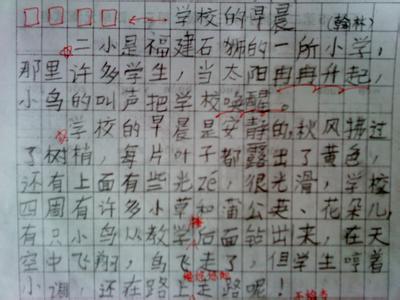 学校的早晨 (翰林)
二小是福建石狮的一所小学,
那里许多学生,当太阳冉冉升起,
小鸟的叫声把学校唤醒。
学校的早晨是安静的,秋风拂过
了树梢,每片叶子都露出了黄色,
还有上面有些光zé,很光滑,学校
四周有许多小草和蒲公英、花朵儿,
有只小鸟从教学楼后面钻出来,在天
空中飞翔,鸟飞走了,但学生哼着
小调,还在路上走路呢!